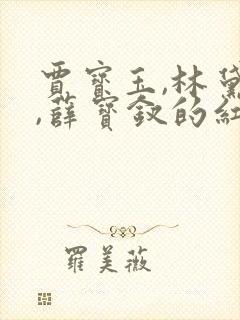 賈寶玉,林黛
,薛寶釵的紅
羅美薇